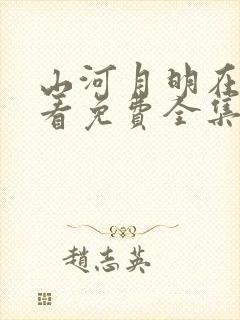 山河月明在
看免费全集
趙志英